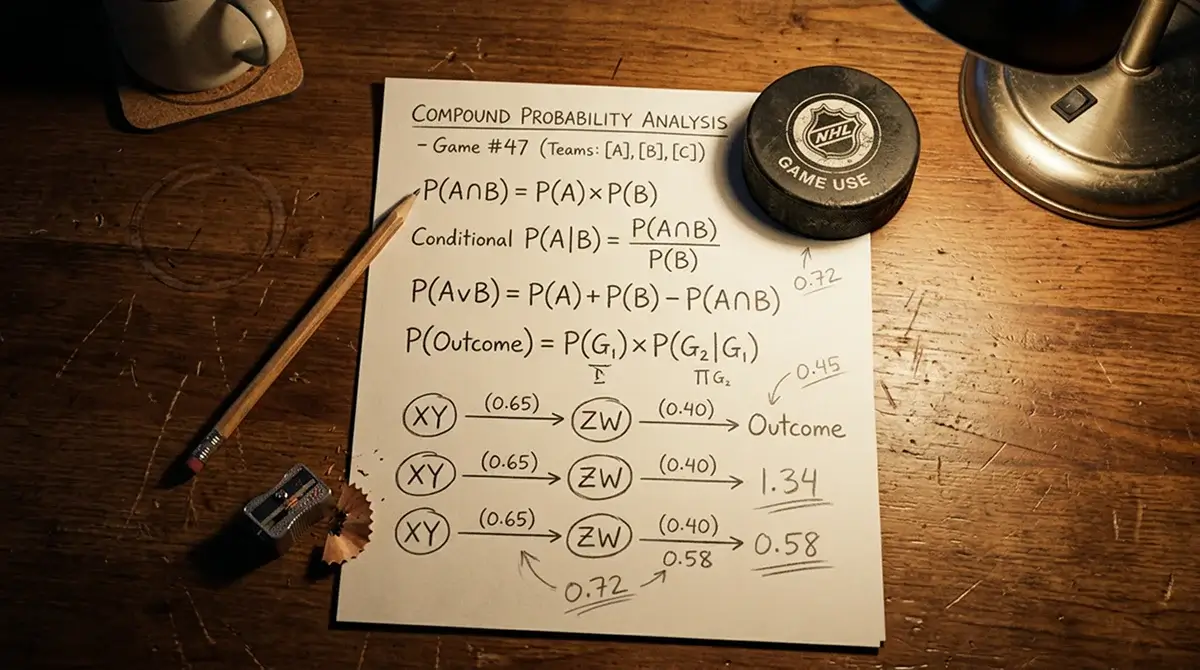 COMPOUND PROBABILITY ANALYSIS
- Game #47 (Teams: [A], [B], [C])
NHL
GAME USE
P(A∩B) = P(A)×P(B)
Conditional P(A|B) = P(A∩B) / P(B)
0.72
P(A∨B) = P(A)+P(B)−P(A∩B)
P(Outcome) = P(G₁)×P(G₂|G₁)
ΠG₂
0.45
XY (0.65) ZW (0.40) Outcome
XY (0.65) ZW (0.40) 1.34
XY (0.65) ZW (0.40) 0.58
0.58
0.72